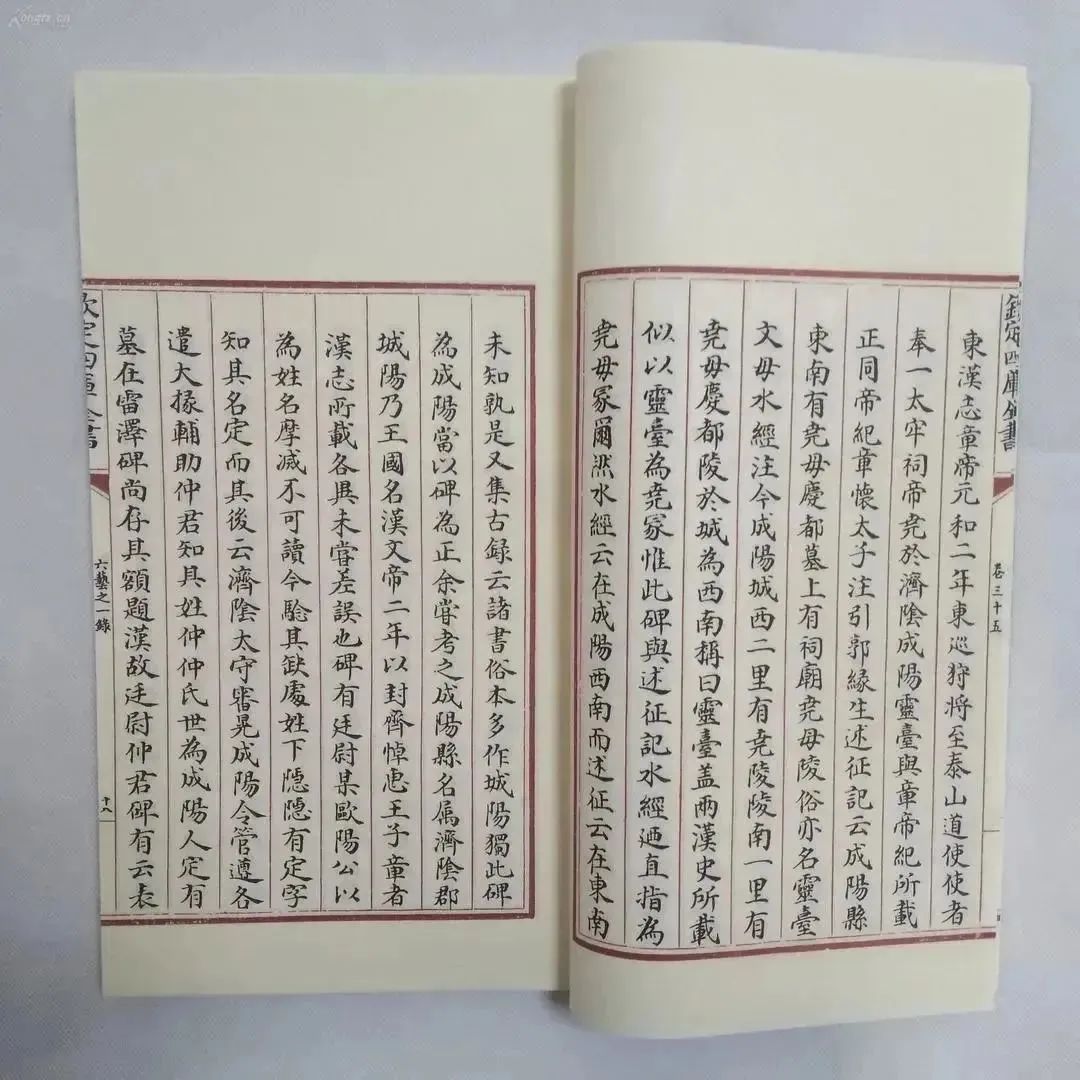 欽定四庫全書
卷三十五
東漢志章帝元和二年東巡狩將至泰山道使使者
奉一太牢祠帝堯於濟隂成陽靈臺與章帝紀所載
正同帝紀章懷太子注引郭緣生述征記云成陽縣
東南有堯母慶都墓上有祠廟堯母陵俗亦名靈臺
文母水經注今成陽城西二里有堯陵陵南一里有
堯母慶都陵於城為西南稱曰靈臺蓋兩漢史所載
似以靈臺為堯冢惟此碑與述征記水經廼直指為
堯母冢爾然水經云在成陽西南而述征云在東南
未知孰是又集古録云諸書俗本多作城陽獨此碑
為成陽當以碑為正余嘗考之成陽縣名屬濟隂郡
城陽乃王國名漢文帝二年以封齊悼惠王子章者
漢志所載各異未嘗差誤也碑有廷尉某歐陽公以
為姓名摩滅不可讀今驗其缺處姓下隠隠有定字
知其名定而其後云濟隂太守審晃成陽令管遵各
遣大掾輔助仲君知其姓仲仲氏世為成陽人定有
墓在雷澤碑尚存其額題漢故廷尉仲君碑有云表
欽定四庫全書
六藝之一錄
十八